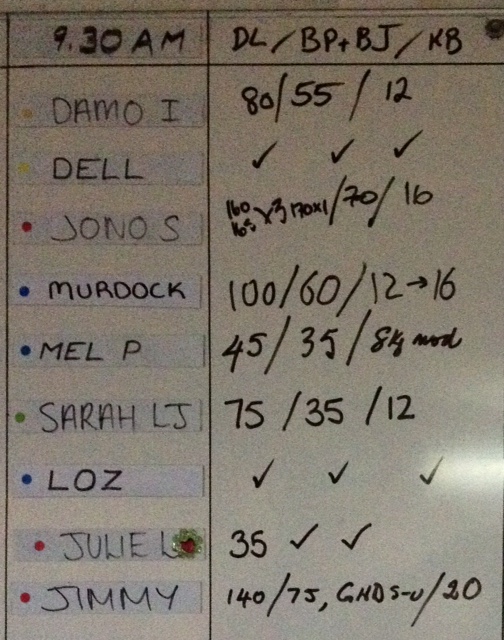 9.30 AM DL / BP+BJ / KB
DAMO I 80/55 / 12
DELL ✓ ✓ ✓
JONO S 160 165 x3 170x1/70/ 16
MURDOCK 100/60/12→16
MEL P 45/35/8kg mod
SARAH LJ 75 /35 /12
LOZ ✓ ✓ ✓
JULIE L 35 ✓ ✓
JIMMY 140/75, GHD S-U/20